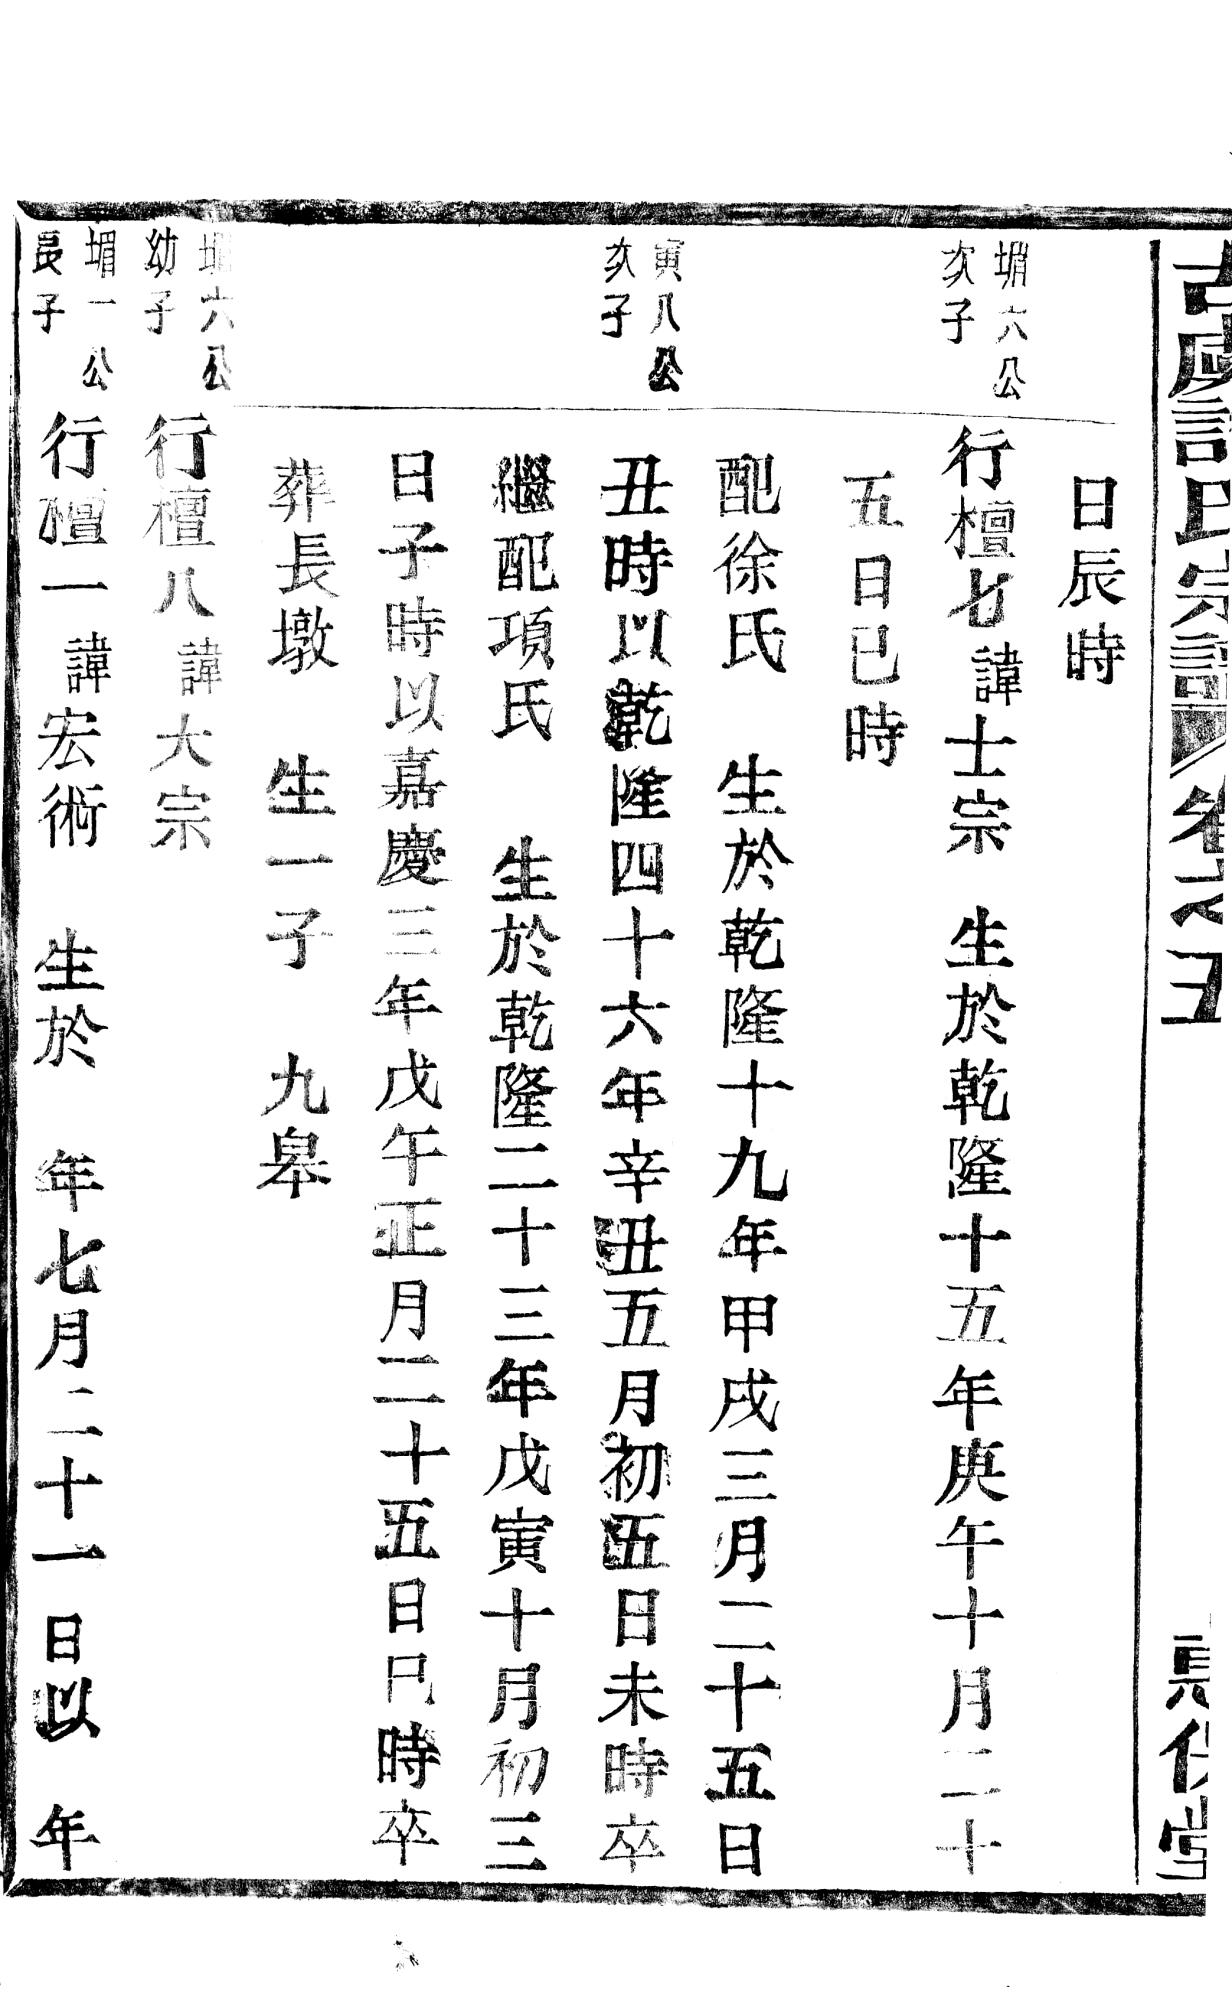 古虞許氏宗譜 卷之五
堂
日辰時
堳六公
次子
行檀七諱士宗 生於乾隆十五年庚午十月二十
五日巳時
配徐氏 生於乾隆十九年甲戌三月二十五日
寅八公
次子
丑時以乾隆四十六年辛丑五月初五日未時卒
繼配項氏 生於乾隆二十三年戊寅十月初三
日子時以嘉慶三年戊午正月二十五日巳時卒
葬長墩 生一子 九皋
堳六公
幼子
行檀八諱大宗
堳一公
長子
行檀一諱宏術 生於 年七月二十一日以 年